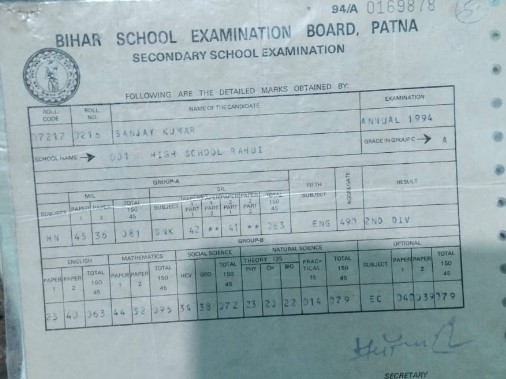 94/A 0169878
BIHAR SCHOOL EXAMINATION BOARD, PATNA
SECONDARY SCHOOL EXAMINATION
FOLLOWING ARE THE DETAILED MARKS OBTAINED BY:
ROLL CODE ROLL NO. NAME OF THE CANDIDATE EXAMINATION
07217 SANJAY KUMAR ANNUAL 1994
SCHOOL NAME → HIGH SCHOOL RAHUI GRADE IN GROUP C → A
GROUP-A
MIL SIL TENTH SUBJECT AGGREGATE RESULT
SUBJECT PAPER 1 PAPER 2 TOTAL 150 45 SUBJECT PART PART PART PART TOTAL 150 45
HN 45 36 081 SNK 42 ** 41 ** 083 ENG 490 2ND DIV
GROUP-B
ENGLISH MATHEMATICS SOCIAL SCIENCE NATURAL SCIENCE OPTIONAL
PAPER 1 PAPER 2 TOTAL 150 45 PAPER 1 PAPER 2 TOTAL 150 45 HCV GEO TOTAL 150 45 THEORY 135 PHY CH BIO PRACTICAL 15 TOTAL 150 45 SUBJECT PAPER 1 PAPER 2 TOTAL 150 45
23 40 063 44 52 096 34 38 072 23 20 22 014 079 EC 040 039 079
SECRETARY